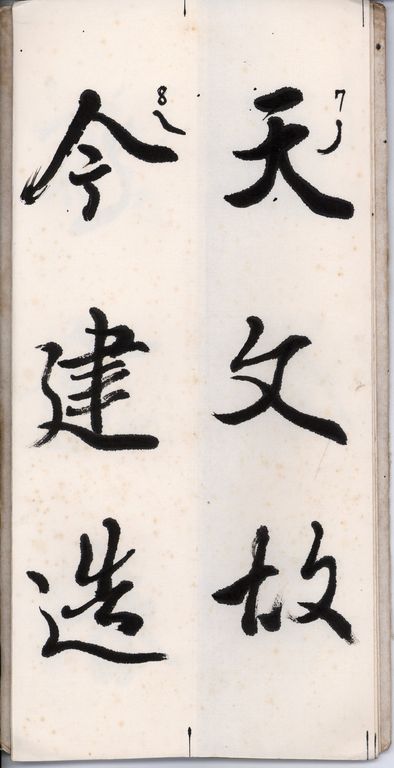 7
天文故
8
今建造